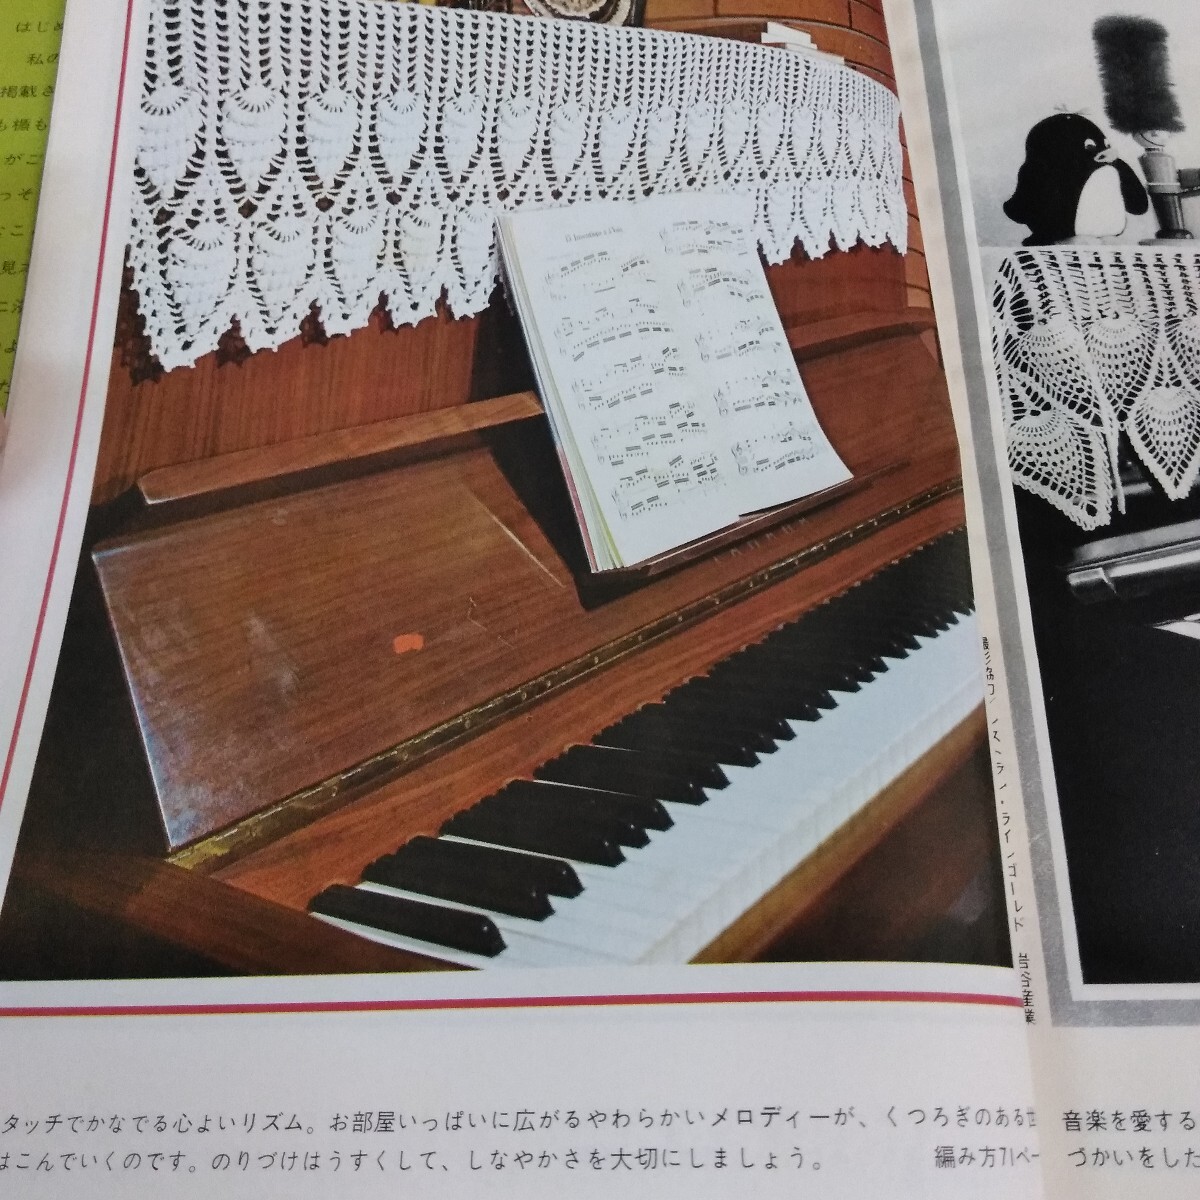 はじめ
私の
掲載さ
も橋も
がご
っそ
なこ
見え
15 Inventions à 2 Voix
YAMAHA
岩谷産業
タッチでかなでる心よいリズム。お部屋いっぱいに広がるやわらかいメロディーが、くつろぎのある世
はこんでいくのです。のりづけはうすくして、しなやかさを大切にしましょう。
編み方71ペー
音楽を愛する
づかいをした